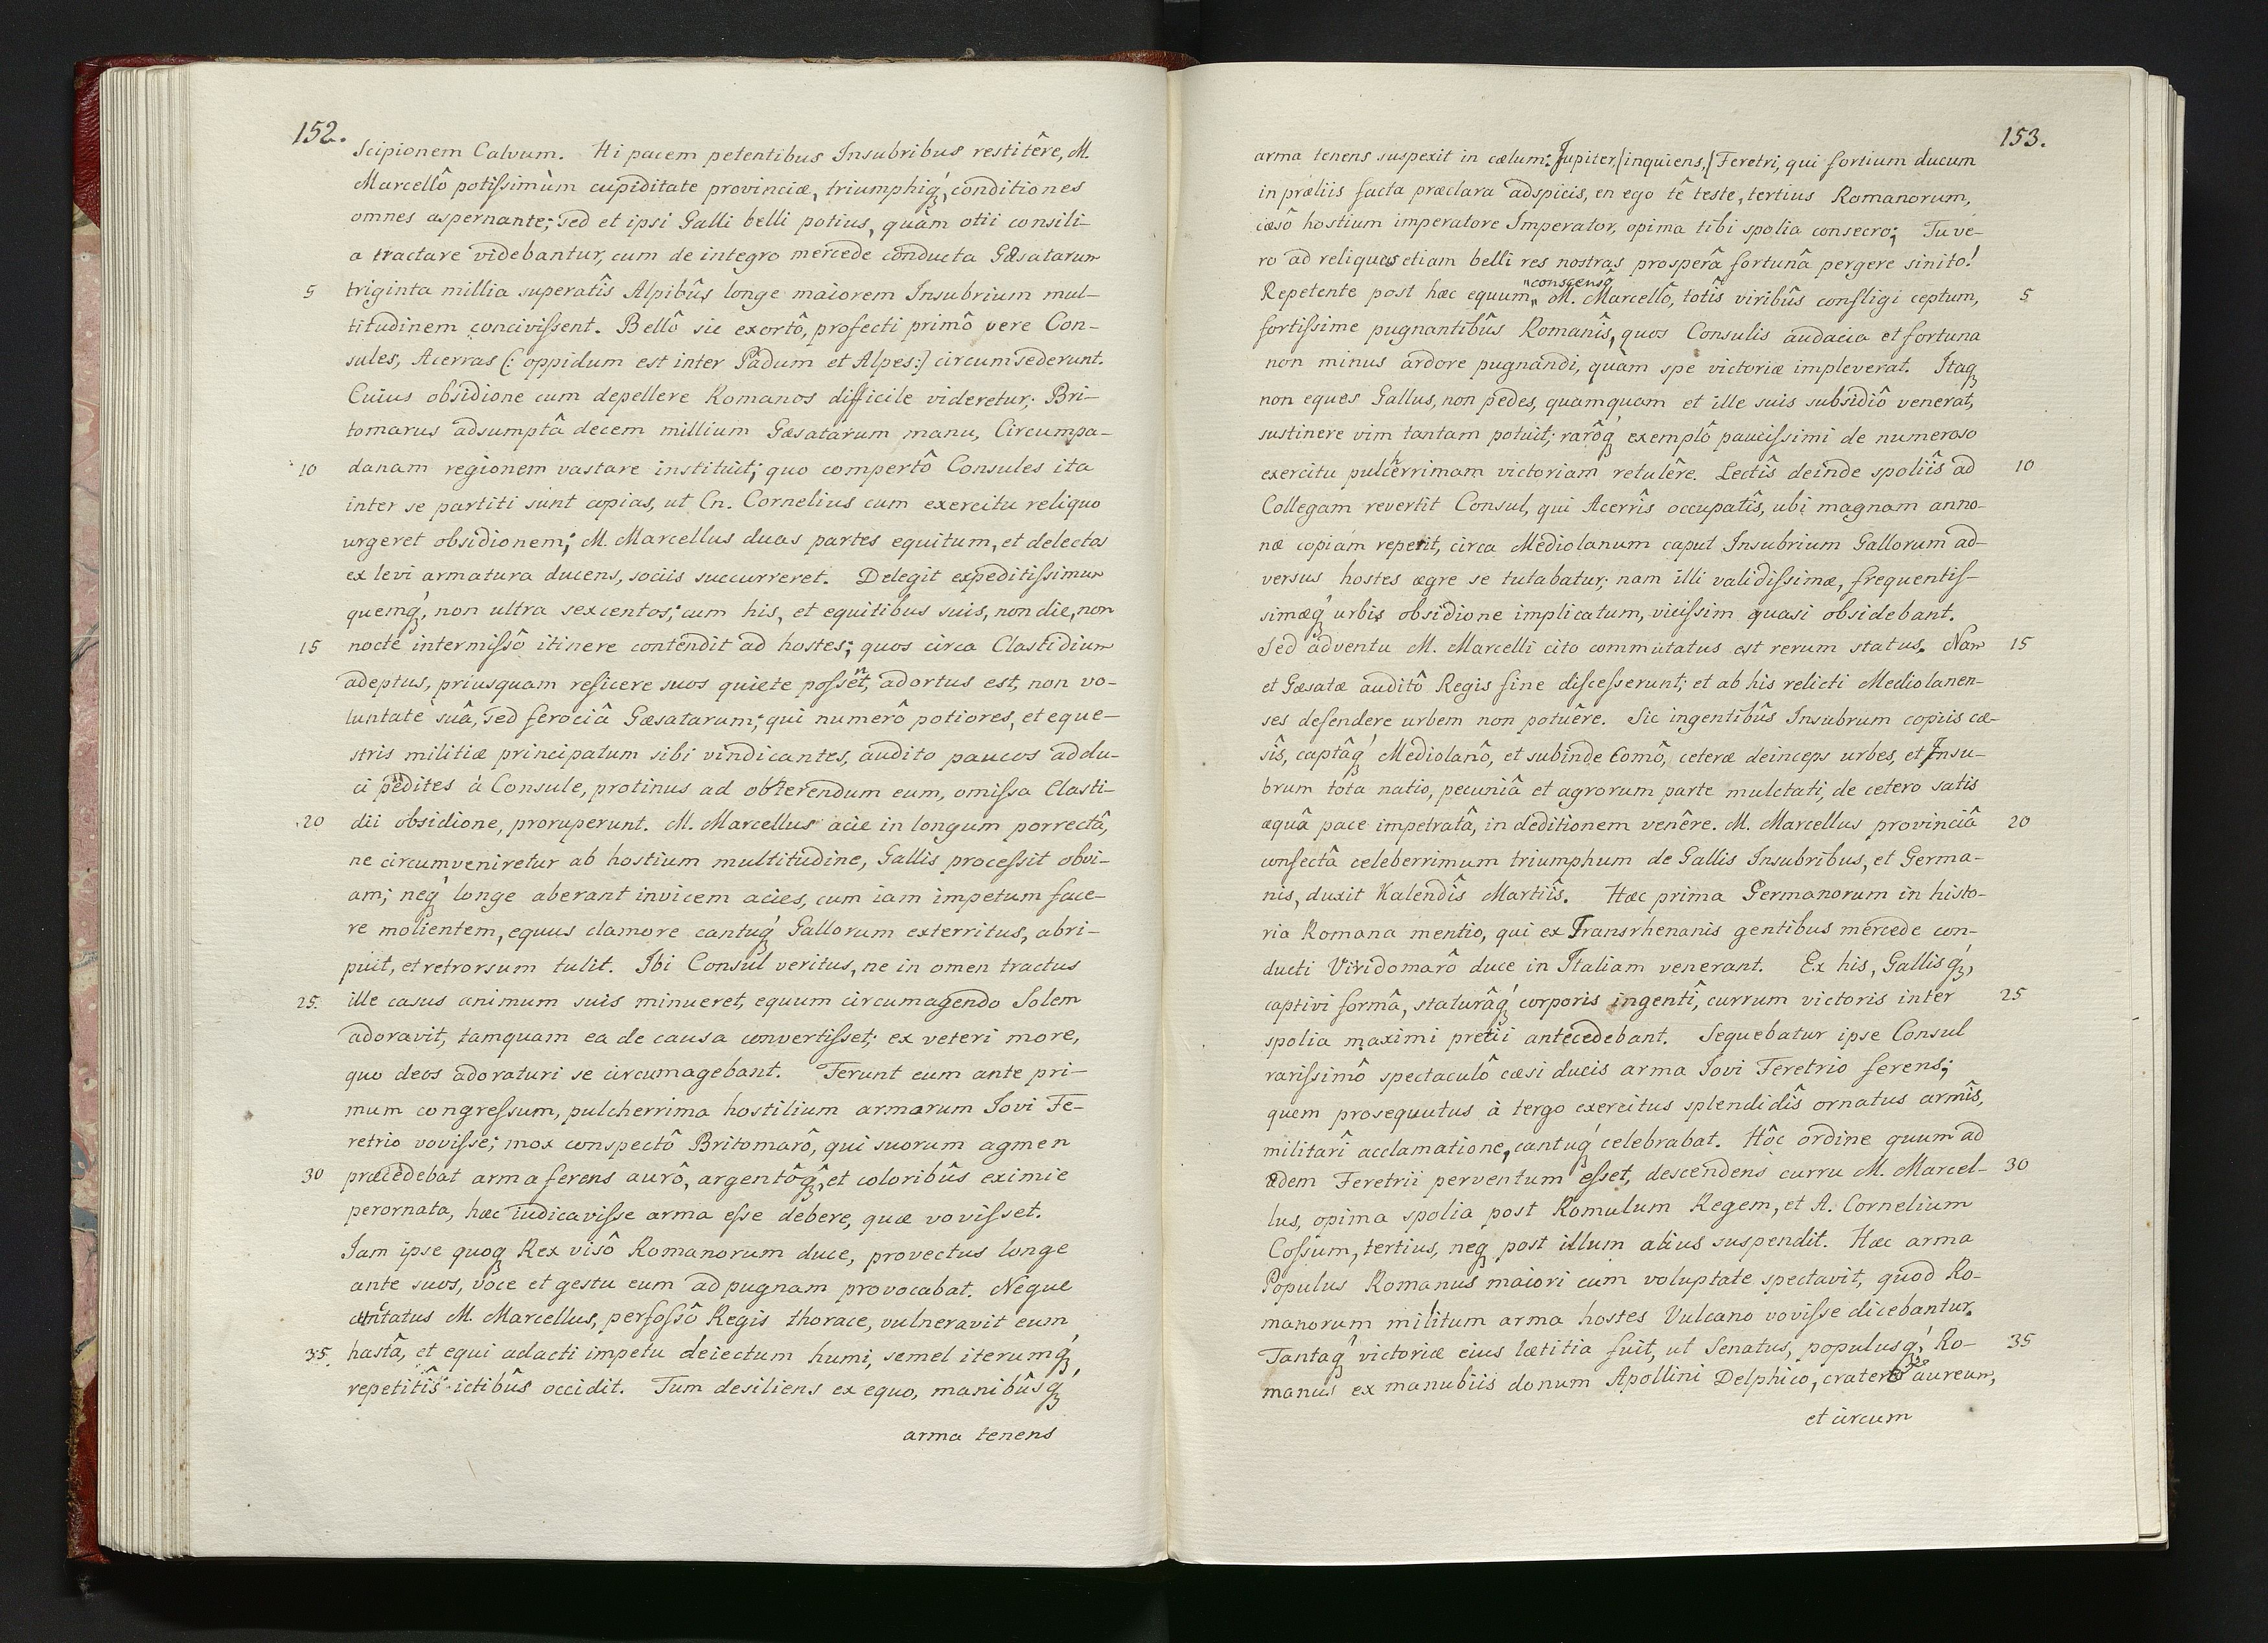 152.
Scipionem Calvum. Hi pacem petentibus Insubribus restitêre, M.
Marcellô potiſsimùm cupiditate provinciæ, triumphiq́ꝫ, conditiones
omnes aspernante; sed et ipsi Galli belli potius, quàm otii consili-
a tractare videbantur, cum de integro mercede conducta Gæsatarum
5 triginta millia superatîs Alpibûs longe maiorem Insubrium mul-
titudinem conciviſsent. Bellô sic exortô, profecti primô vere Con-
sules, Acerras (: oppidum est inter Padum et Alpes:) circumsederunt.
Cuius obsidione cum depellere Romanos difficile videretur; Bri-
tomarus adsumptâ decem millium Gæsatarum manu, Circumpa-
10 danam regionem vastare instituit; quo compertô Consules ita
inter se partiti sunt copias, ut Cn. Cornelius cum exercitu reliquo
urgeret obsidionem; M. Marcellus duas partes equitum, et delectos
ex levi armatura ducens, sociis succurreret. Delegit expeditiſsimum
quemq́ꝫ, non ultra sexcentos; cum his, et equitibus suis, non die, non
15 nocte intermiſsô itinere contendit ad hostes; quos circa Clastidium
adeptus, priusquam reficere suos quiete poſsent, adortus est, non vo-
luntate suâ, sed ferociâ Gæsatarum; qui numerô potiores, et eque-
stris militiæ principatum sibi vindicantes, audito paucos addu-
ci pedites à Consule, protinus ad obterendum eum, omiſsa Clasti-
20 dii obsidione, proruperunt. M. Marcellus acie in longum porrectâ,
ne circumveniretur ab hostium multitudine, Gallis proceſsit obvi-
am; neq́ꝫ longe aberant invicem acies, cum iam impetum face-
re molientem, equus clamore cantuq́ꝫ Gallorum exterritus, abri-
puit, et retrorsum tulit. Ibi Consul veritus, ne in omen tractus
25. ille casus animum suis minueret, equum circumagendo Solem
adoravit, tamquam ea de causa convertiſset; ex veteri more,
quo deos adoraturi se circumagebant. Ferunt eum ante pri-
mum congreſsum, pulcherrima hostilium armorum Iovi Fe-
retrio voviſse; mox conspectô Britomarô, qui suorum agmen
30 præcedebat arma ferens aurô, argentôq́ꝫ, et coloribûs eximie
perornata, hæc iudicaviſse arma eſse debere, quæ voviſset.
Iam ipse quoqꝫ Rex visô Romanorum duce, provectus longe
ante suos, voce et gestu eum ad pugnam provocabat. Neque
M. Marcellus, perfoſsô Regis thorace, vulneravit eum
35. hastâ, et equi adacti impetu deiectum humi, semel iterumq́ꝫ,
repetitîs ictibûs occidit. Tum desiliens ex equo, manibûsq́ꝫ
arma tenens
153.
arma tenens suspexit in cælum: Jupiter, [inquiens,] Feretri, qui fortium ducum
in præliis facta præclara adspicis, en ego tê teste, tertius Romanorum,
cæsô hostium imperatore Imperator, opima tibi spolia consecro; Tu ve-
ro ad reliquas etiam belli res nostras prosperâ fortunâ pergere sinito!
Repetente post hæc equum „ "conscensô, M. Marcellô, totîs viribûs confligi ceptum, 5
fortiſsime pugnantibûs Romanîs, quos Consulis audacia et fortuna
non minus ardore pugnandi, quàm spe victoriæ impleverat. Itaqꝫ
non eques Gallus, non pedes, quamquam et ille suis subsidiô venerat,
sustinere vim tantam potuit; rarôq́ꝫ exemplô pauciſsimi de numeroso
exercitu pulcerrimam victoriam retulêre. Lectîs deinde spoliîs ad 10
Collegam revertit Consul, qui Acerrîs occupatîs, ubi magnam anno-
næ copiam reperit, circa Mediolanum caput Insubrium Gallorum ad-
versus hostes ægre se tutabatur; nam illi validiſsimæ, frequentiſ-
simæq́ꝫ urbis obsidione implicatum, viciſsim quasi obsidebant.
Sed adventu M. Marcelli cito commutatus est rerum status. Nam 15
et Gæsatæ auditô Regis fine diſceſserunt; et ab his relicti Mediolanen-
ses defendere urbem non potuêre. Sic ingentibûs Insubrum copiis cæ-
sîs, captâq́ꝫ Mediolanô, et subinde Comô, ceteræ deinceps urbes, et Insu-
brum tota natio, pecuniâ et agrorum parte mulctati, de cetero satis
æquâ pace impetratâ, in deditionem venêre. M. Marcellus provinciâ 20
confectâ celeberrimum triumphum de Gallis Insubribus, et Germa-
nis, duxit Kalendîs Martiîs. Hæc prima Germanorum in histo-
ria Romana mentio, qui ex Transrhenanis gentibus mercede con-
ducti Viridomarô duce in Italiam venerant. Ex his, Gallisq́ꝫ,
captivi formâ, staturâq́ꝫ corporis ingentî, currum victoris inter 25
spolia maximi pretii antecedebant. Sequebatur ipse Consul
rariſsimô spectaculô cæsi ducis arma Iovi Feretrio ferens;
quem prosequutus à tergo exercitus splendidîs ornatus armîs,
militarî acclamatione, cantuq́ꝫ celebrabat. Hôc ordine quum ad
ædem Feretrii perventum eſset, descendens curru M. Marcel- 30
lus, opima spolia post Romulum Regem, et A. Cornelium
Coſsum, tertius, neqꝫ post illum alius suspendit. Hæc arma
Populus Romanus maiori cum voluptate spectavit, quod Ro-
manorum militum arma hostes Vulcano voviſse dicebantur.
Tantaq́ꝫ victoriæ eius lætitia fuit, ut Senatus, populusq́ꝫ Ro- 35
manus ex manubiis donum Apollini Delphico, aureum,
et circum